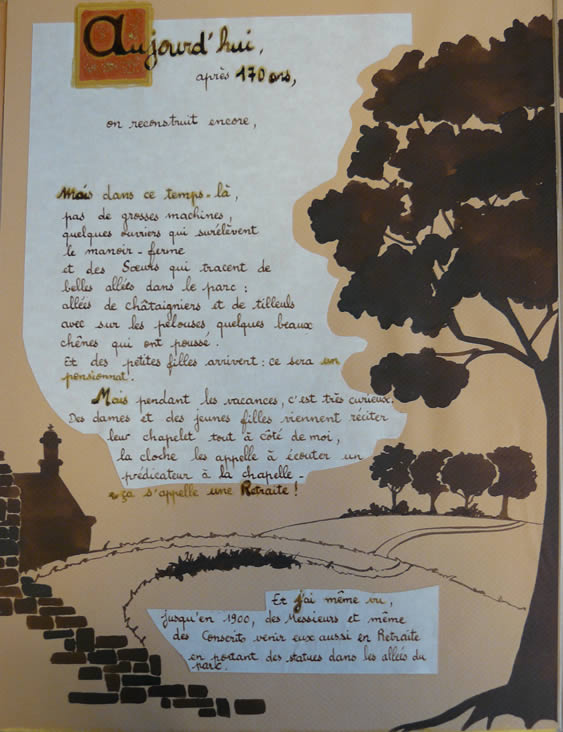 Aujourd'hui,
après 170 ans,
on reconstruit encore,
Mais dans ce temps-là,
pas de grosses machines,
quelques ouvriers qui surélèvent
le manoir-ferme
et des Sœurs qui tracent de
belles allées dans le parc :
allées de châtaigniers et de tilleuls
avec sur les pelouses, quelques beaux
chênes qui ont poussé.
Et des petites filles arrivent : ce sera un
pensionnat.
Mais pendant les vacances, c'est très curieux.
Des dames et des jeunes filles viennent réciter
leur chapelet tout à côté de moi,
la cloche les appelle à écouter un
prédicateur à la chapelle -
ça s'appelle une Retraite !
Et j'ai même vu,
jusqu'en 1900, des Messieurs et même
des Conscrits venir eux aussi en Retraite
en portant des statues dans les allées du
parc.